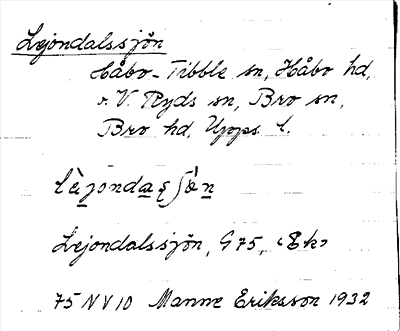 Lejondalssjön
Håbo-Tibble sn, Håbo hd,
o. V. Ryds sn, Bro sn,
Bro hd, Upps l.
Lejondalssjön, G 75, ‹Ek›
75 NV 10 Manne Eriksson 1932